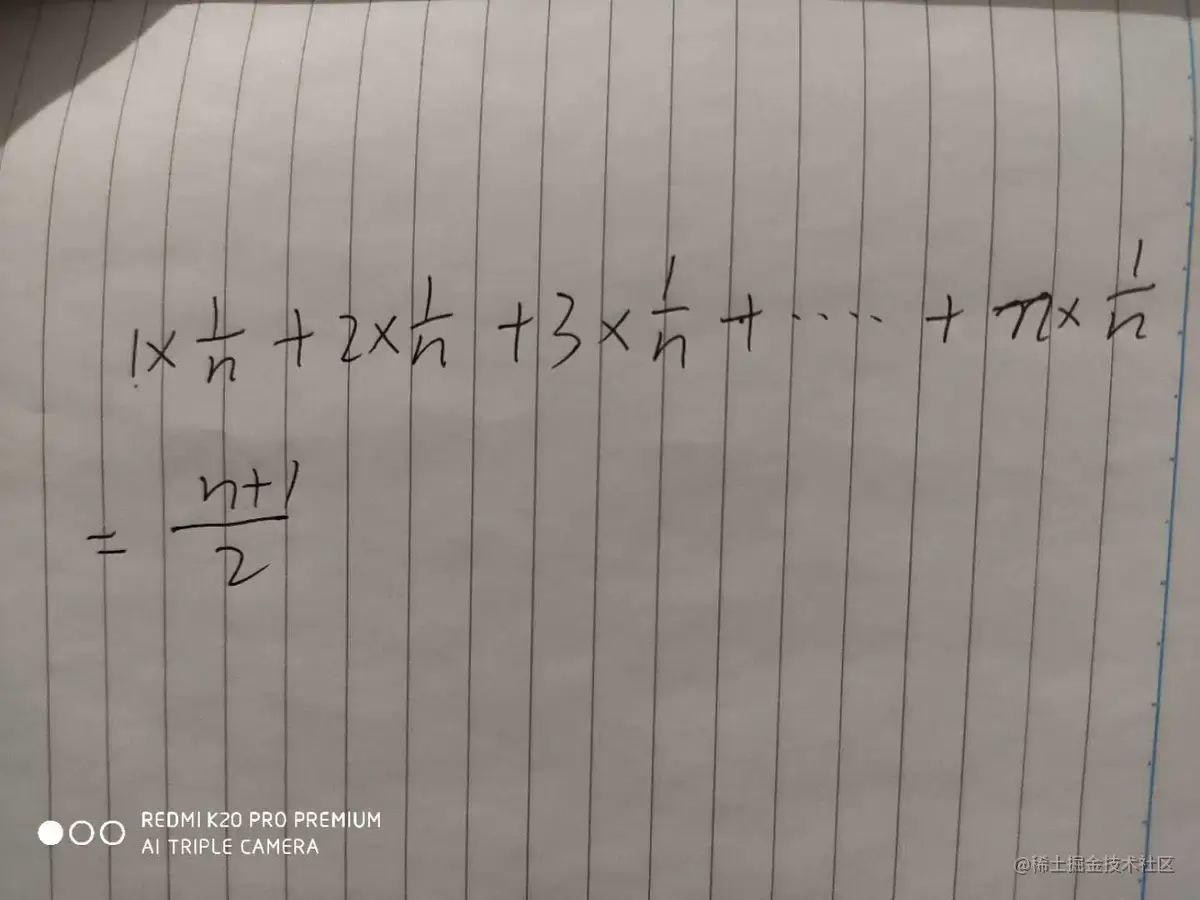 1×1/n+2×1/n+3×1/n+····+n×1/n
=n+1/2
REDMI K20 PRO PREMIUM
AI TRIPLE CAMERA
@稀土掘金技术社区